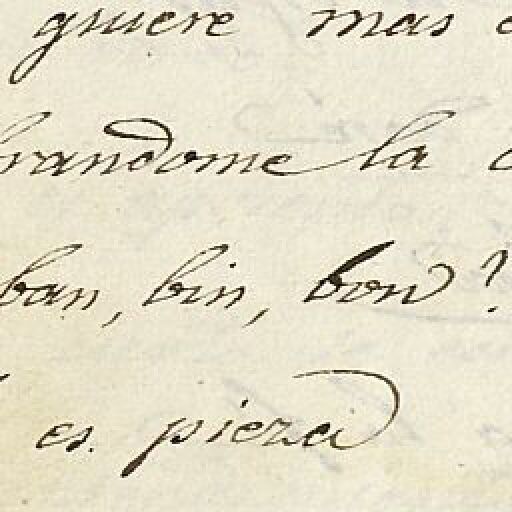 quiere mas
brandome la
ban, bin, bon?
es. pieza